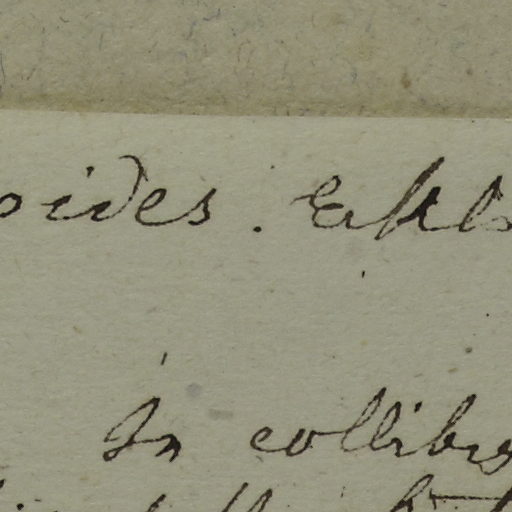 oides. Eckl
In collibus